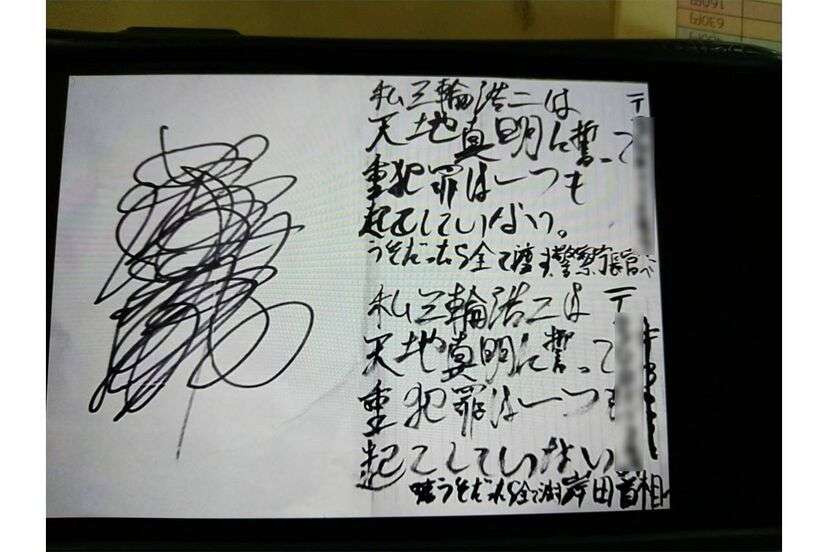 私三輪浩二は 〒
天地真明に誓って
重犯罪は一つも
起こしていない。
うそだったら全て 警察長官へ
私三輪浩二は 〒
天地真明に誓って
重犯罪は一つも
起こしていない
うそだったら全て 岸田首相